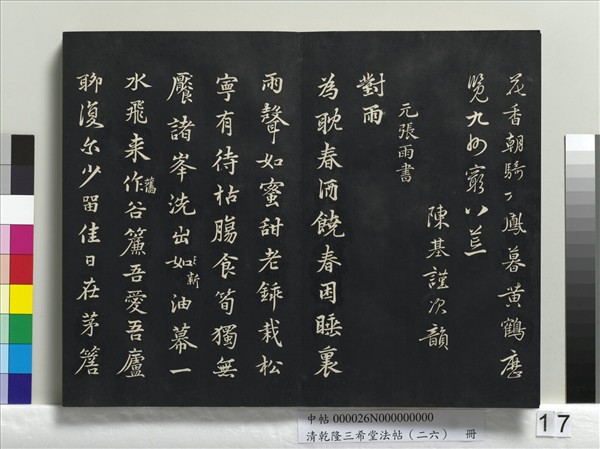 花香朝騎鳳暮黃鶴歷
覽九州窮八荒
陳基謹次韻
元張雨書
對雨
為耽春酒饒春困睡裏
雨聲如蜜甜老栽松
寧有待枯腸食筍獨無
饜諸峯洗出如新油幕一
水飛来作舊谷簾吾愛吾廬
聊復尔少留佳日在茅簷
中帖 000026N000000000
清乾隆三希堂法帖(二六) 冊
17